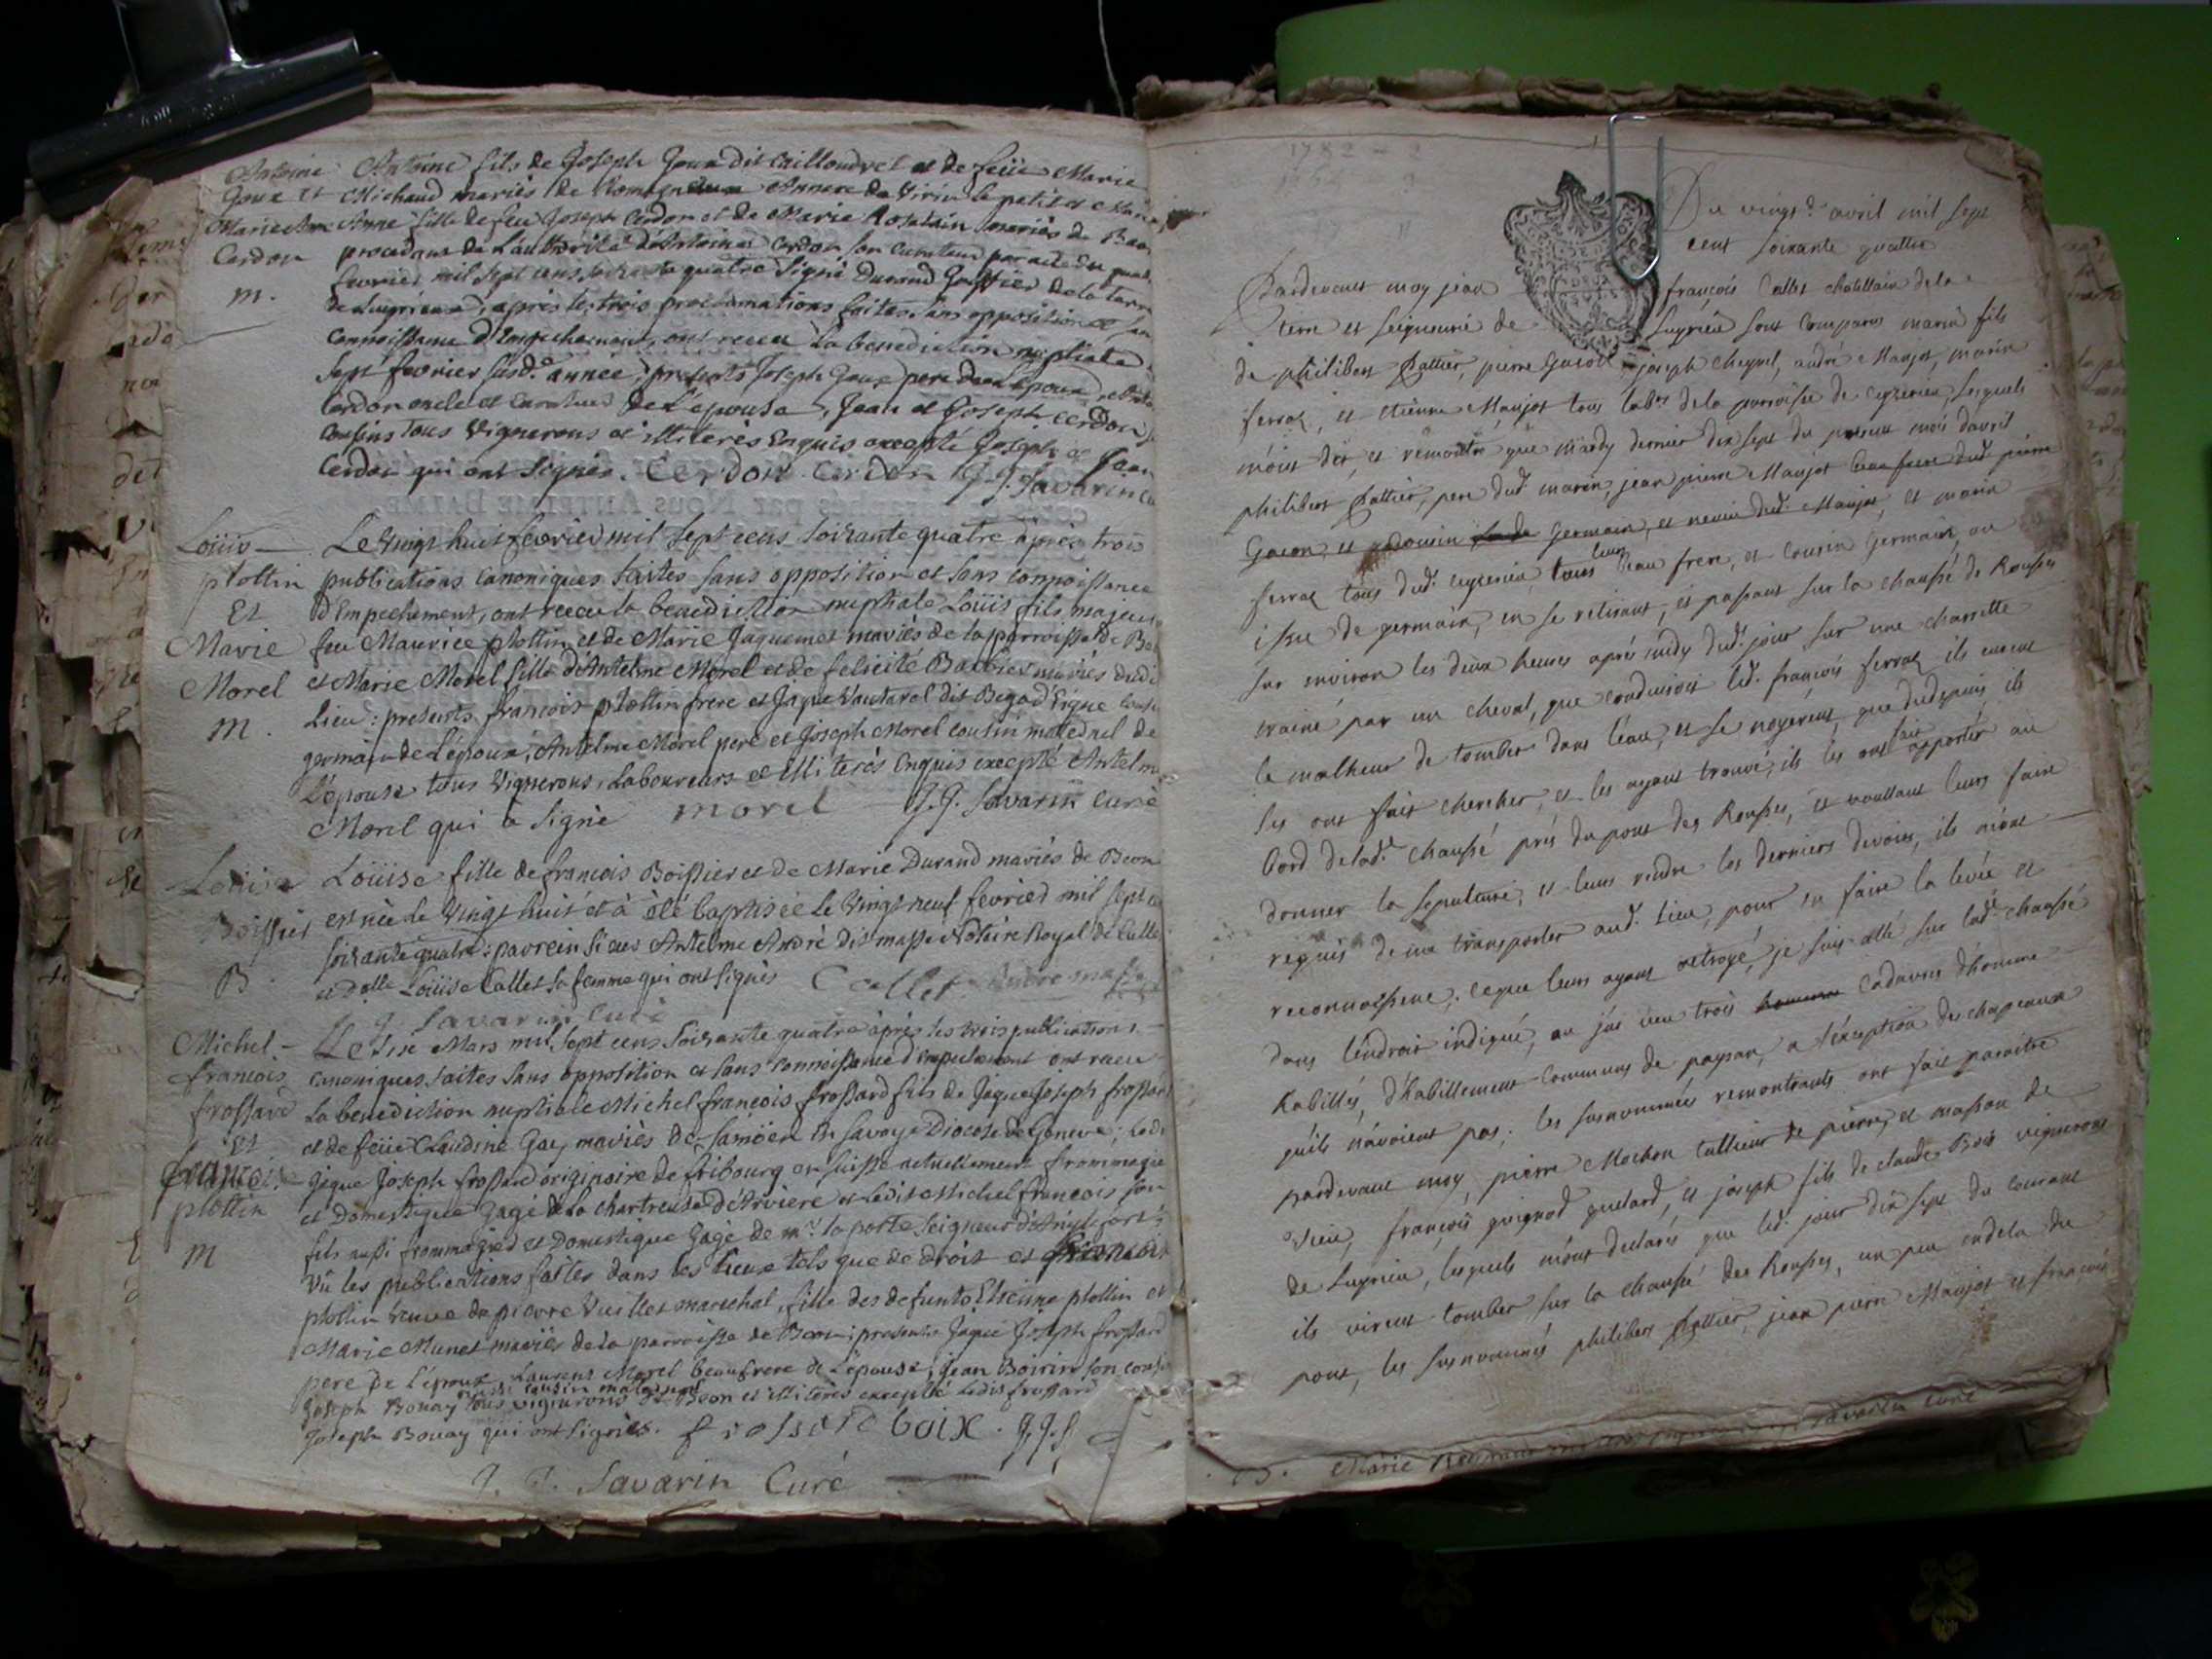 Antoine Antoine fils de Joseph Goux dit Cailloudret et de feüe Marie
Goux et Michaud mariés de Romagnieux Annexe de Virieu le petit et Marie
Marie Anne Anne fille de feu Joseph Cerdon et de Marie Rostain mariés de Beon
Cerdon procedant de l'authorité d'Antoine Cerdon son curateur par acte du
m. fevrier mil sept cens soixante quatre Signé Durand Greffier de la terre
de Luyrieux, après les trois proclamations faites sans opposition et sans
connoissance d'Empechement, ont receu la benediction nuptiale
sept fevrier susd.e année, presents Joseph Goux pere de l'epoux,
Cerdon oncle et curateur de l'epouse, Jean et Joseph Cerdon
cousins tous vignerons et illiterés enquis excepté Joseph et Jean
Cerdon qui ont signés. Cerdon Cerdon J.J. Savarin
Loüis Le vingt huit fevrier mil sept cens soixante quatre après trois
plottin publications canoniques faites sans opposition et sans connoissance
Et d'Empechement, ont receu la benediction nuptiale Loüis fils majeur
Marie feu Maurice plottin et de Marie Jaquemet mariés de la parroisse de
Morel et Marie Morel fille d'Antelme Morel et de felicité Barbier mariés dudit
m. Lieu : presents françois plottin frere et Jaque Vautaret dit Begod Vigne
germain de l'époux, Antelme Morel pere et Joseph Morel cousin maternel de
l'épouse tous vignerons, laboureurs et illiterés enquis excepté Antelme
Morel qui à signé morel J.J. Savarin Curé
Loüise Loüise fille de francois Boissier et de Marie Durand mariés de Beon
Boissier est née le vingt huit et à été baptisée le vingt neuf fevrier mil sept
soixante quatre : parrein sieur Antelme André dit masse Notaire Royal de
B. et D.elle Loüise Callet sa femme qui ont signés Callet André masse
J.J. Savarin Curé
Michel Le six Mars mil sept cens soixante quatre après les trois publications
francois canoniques faites sans opposition et sans connoissance d'empechement ont receu
frossard la benediction nuptiale Michel françois frossard fils de Jaque Joseph frossard
Et et de feüe Claudine Gay mariés de Samöen en Savoye Diocese de Geneve ; ledit
françoise Jaque Joseph frossard originaire de fribourg en suisse actuellement frommagier
plottin et Domestique gagé de la chartreuse d'Arviere et ledit Michel francois son
m fils aussi frommagier et Domestique gagé de m.r la porte seigneur
Vû les publications faites dans les lieux tels que de droit et francoise
plottin veuve de pierre Vuillet marechal, fille des defunts Etienne plottin et
Marie Munet mariés de la parroisse de Beon : presents Jaque Joseph frossard
pere de l'époux, Laurens Morel beaufrere de l'épouse, Jean Boirin son
aussi cousin maternel
Joseph Bouay tous vignerons de Beon et illiterés excepté ledit frossard
Joseph Bouay qui ont signés. frossard boix. J.J.S
J. J. Savarin Curé
Du vingt.e avril mil sept
cent soixante quattre
Pardevant moy jean françois Callet chatellain de la
terre et seigneurie de Luyrieu sont comparus marin fils
de philibert Pattier, pierre Gacon, joseph Cheynel, andré Maujot, marin
ferraz, et etienne Maujot tous lab.rs de la parroisse de ceyzerieu, lesquels
m'ont dit, et remontré que mardy dernier dix sept du present mois d'avril
philibert Pattier, pere dud.t marin, jean pierre Maujot beau frere dud.t pierre
Gacon, et cousin germain, et neveu dud.t Maujot, et marin
ferraz tous dud.t ceyzerieu, leur beau frere, et cousin germain, ou
issu de germain, en se retirant, et passant sur la chaussé de Rousses
sur environ les deux heures aprés midy dud.t jour sur une charrette
trainé par un cheval, que conduisoit led.t françois ferraz ils eurent
le malheur de tomber dans l'eau, et se noyerent, que dudepuis ils
les ont fait chercher, et les ayant trouvé, ils les ont fait apporter au
bord de lad.te chaussé prés du pont des Rousses, et voullant leurs faire
donner la sepulture, et leurs rendre les derniers devoirs, ils m'ont
requis de me transporter aud.t lieu, pour en faire la levée et
reconnoissance, ce que leurs ayant octroyé, je suis allé sur lad.te chaussé
dans l'endroit indiqué, ou j'ai veu trois cadavres d'homme
habillés, d'habillement communs de paysan, a l'exeption de chapeaux
qu'ils n'avoient pas ; les susnommés remontrants ont fait paroitre
pardevant moy, pierre Mochon tallieur de pierre, et masson de
vieu, françois guignod guetard, et joseph fils de claude Bois vignerons
de Luyrieu, lesquels m'ont declarés que led.t jour dix sept du courant
ils virent tomber sur la chaussé des Rousses, un peu endela du
pont, les susnommés philibert Pattier, jean pierre Maujot et françois
Savarin Curé
B. Marie